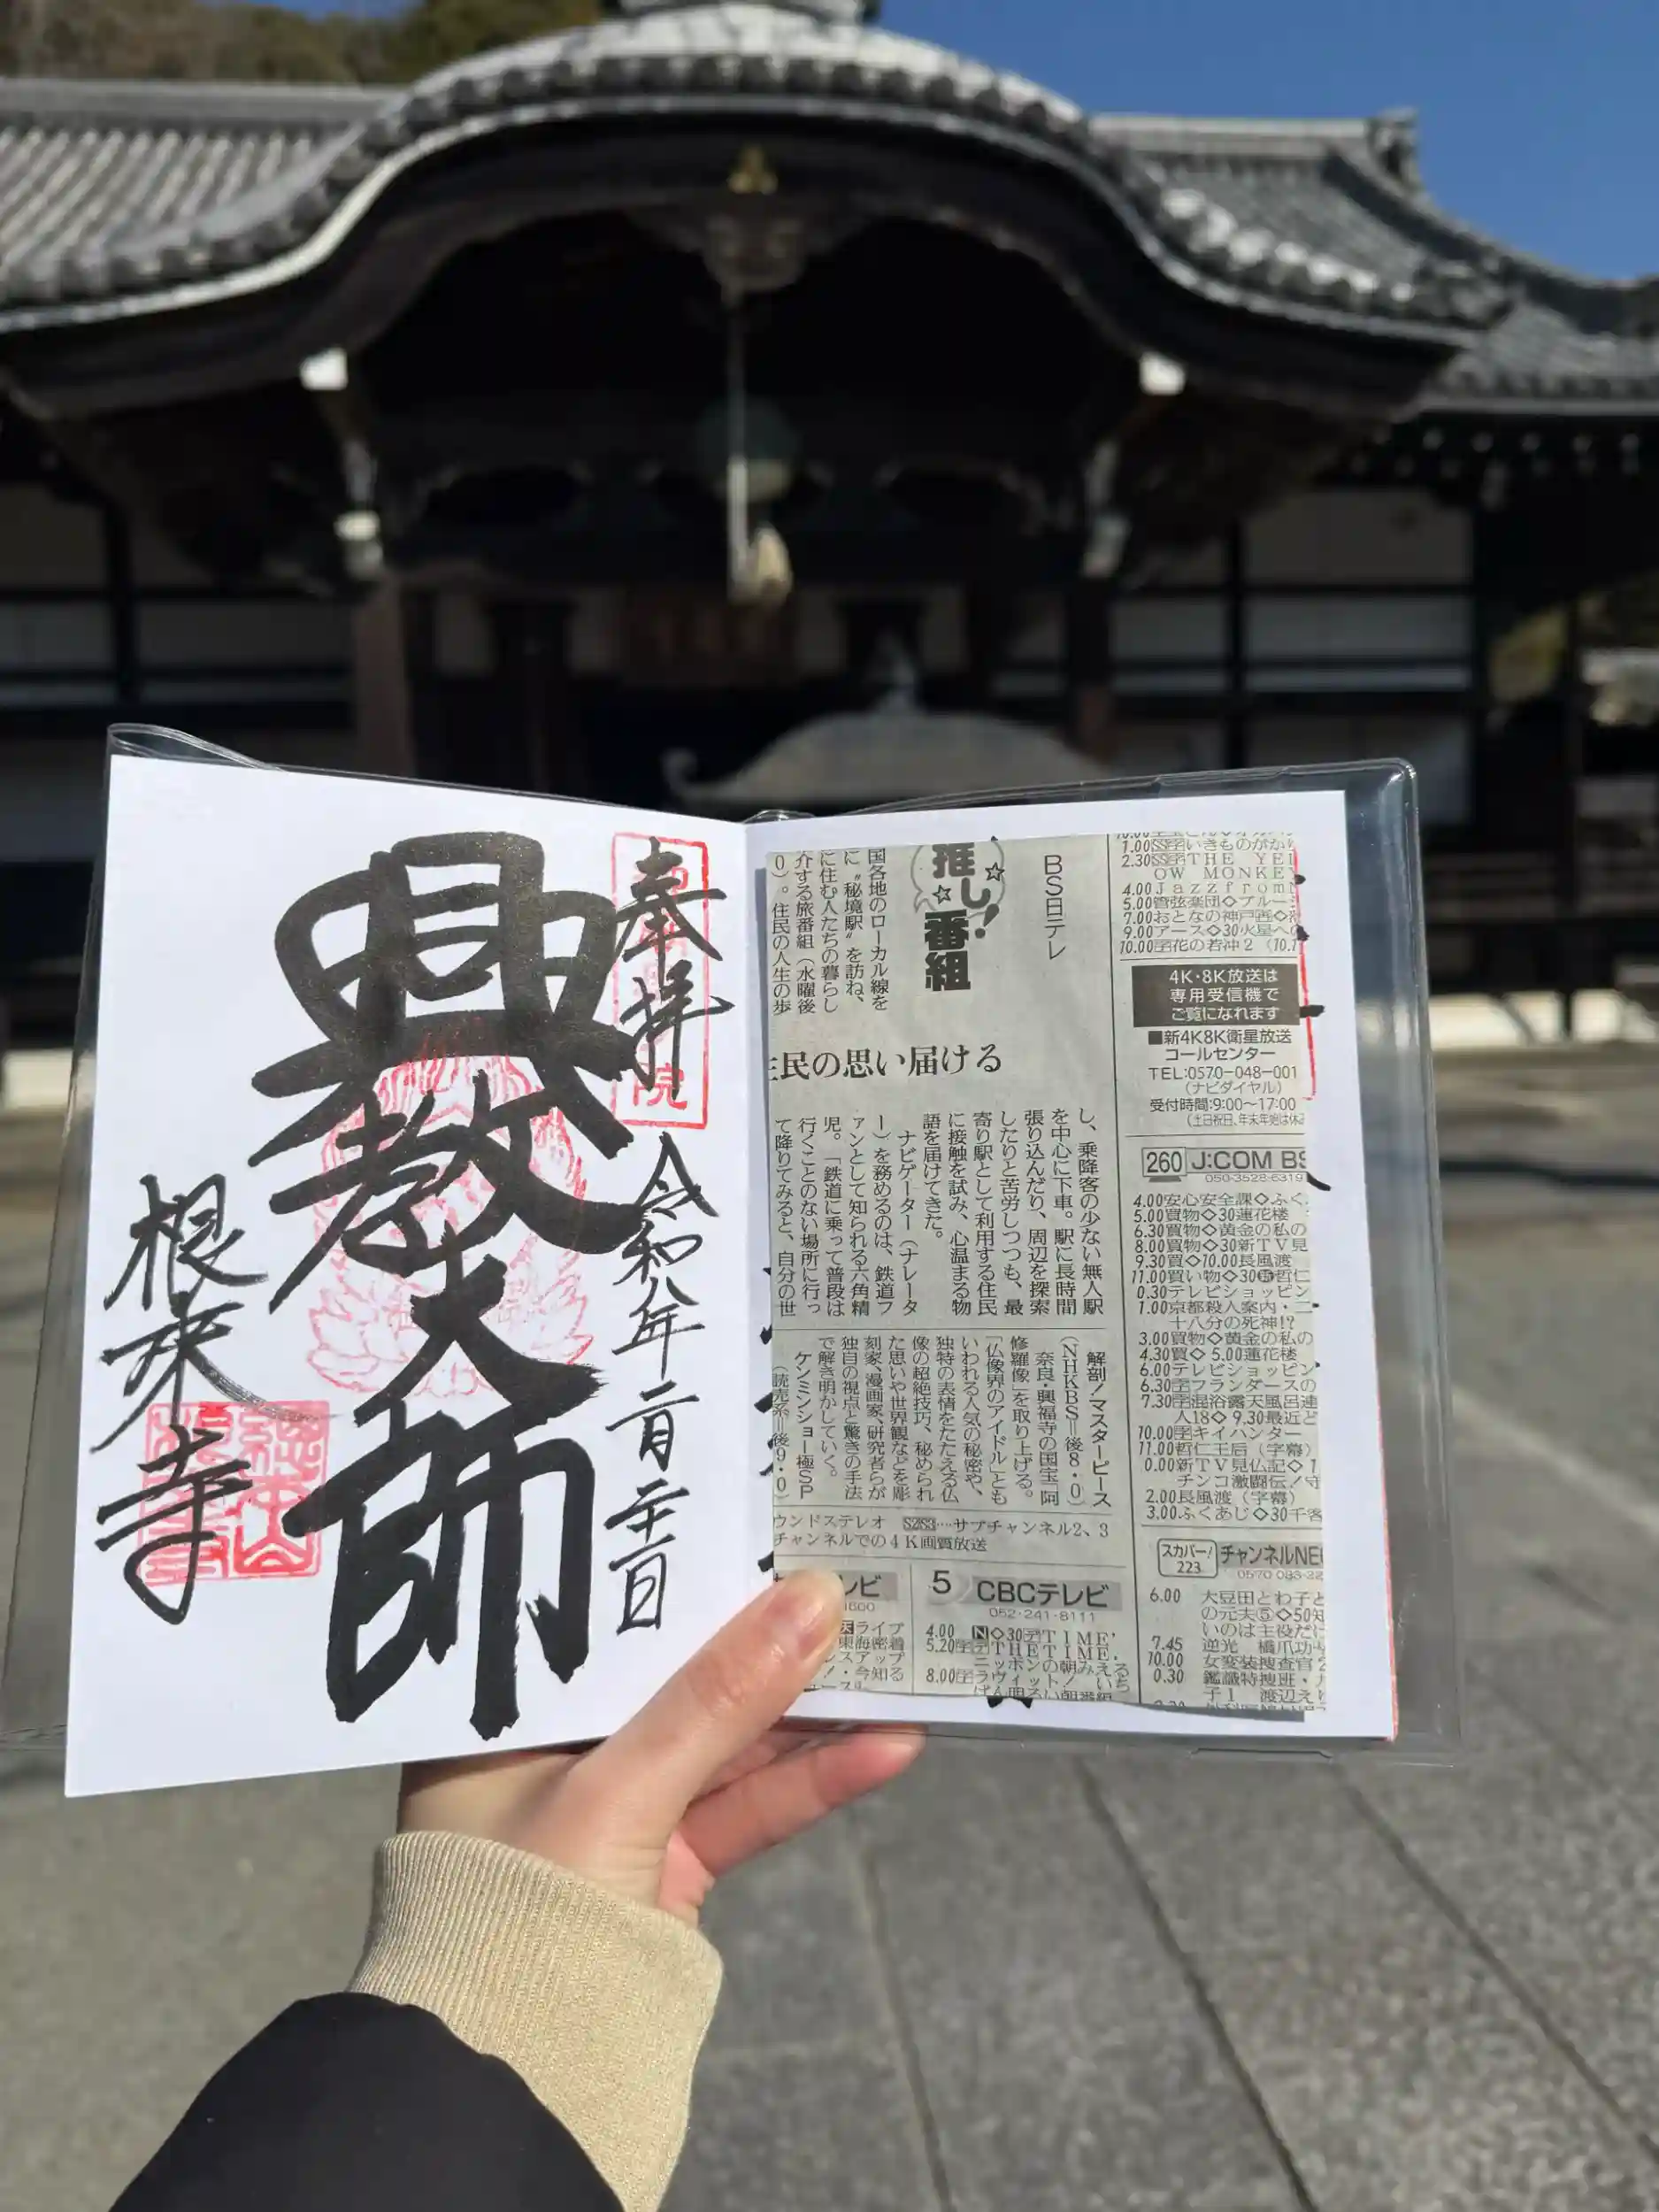 奉拝
令和八年二月二十日
興教大師
根来寺
院
BS日テレ
推し!
番組
国各地のローカル線を
に〝秘境駅〟を訪ね、
に住む人たちの暮らし
介する旅番組（水曜後
0）。住民の人生の歩
住民の思い届ける
し、乗降客の少ない無人駅
を中心に下車。駅に長時間
張り込んだり、周辺を探索
したりと苦労しつつも、最
寄り駅として利用する住民
に接触を試み、心温まる物
語を届けてきた。
ナビゲーター（ナレータ
ー）を務めるのは、鉄道フ
ァンとして知られる六角精
児。「鉄道に乗って普段は
行くことのない場所に行っ
て降りてみると、自分の世
解剖！マスターピース
（NHKBS＝後8・0）
奈良・興福寺の国宝「阿
修羅像」を取り上げる。
「仏像界のアイドル」とも
いわれる人気の秘密や、
独特の表情をたたえる仏
像の超絶技巧、秘められ
た思いや世界観などを彫
刻家、漫画家、研究者らが
独自の視点と驚きの手法
で解き明かしていく。
ケンミンショー極SP
（読売系＝後9・0）
ウンドステレオ S2S3…サブチャンネル2、3
チャンネルでの4K画質放送
レビ
5 CBCテレビ
052-241-8111
4.00 N◇30天TIME'
5.20 THETIME,
ニッポンの朝みえる
8.00 ラヴィット! いち
ばん明るい朝番組
ライブ
東海密着
ンスアップ
!・今知る
1.00 いきものがか
2.30 THE YEL
OW MONKEY
4.00 Jazzfrom
5.00 管弦楽団◇ブルー
7.00 おとなの神戸
9.00 アース◇30火星へ
10.00 花の若冲2
4K・8K放送は
専用受信機で
ご覧になれます
■新4K8K衛星放送
コールセンター
TEL:0570-048-001
（ナビダイヤル）
受付時間:9:00〜17:00
（土日祝日、年末年始は休
260 J:COM BS
050-3528-6319
4.00 安心安全課◇ふく
5.00 買物◇30蓮花楼
6.30 買物◇黄金の私の
8.00 買物◇30新TV見
9.30 買◇10.00長風渡
11.00 買い物◇30哲仁
0.30 テレビショッピン
1.00 京都殺人案内・二
十八分の死神!?
3.00 買物◇黄金の私の
4.30 買◇5.00蓮花楼
6.00 テレビショッピン
6.30 フランダースの
7.30 混浴露天風呂連
人18◇9.30最近ど
10.00 キイハンター
11.00 哲仁王后（字幕）
0.00 新TV見仏記◇1
チンコ激闘伝！守
2.00 長風渡（字幕）
3.00 ふくあじ◇30千客
スカパー!
223
チャンネルNE
6.00 大豆田とわ子と
の元夫⑤◇50知
いのは主役だけ
7.45 逆光 橋爪功
10.00 女変装捜査官2
0.30 鑑識特捜班・
子1 渡辺え